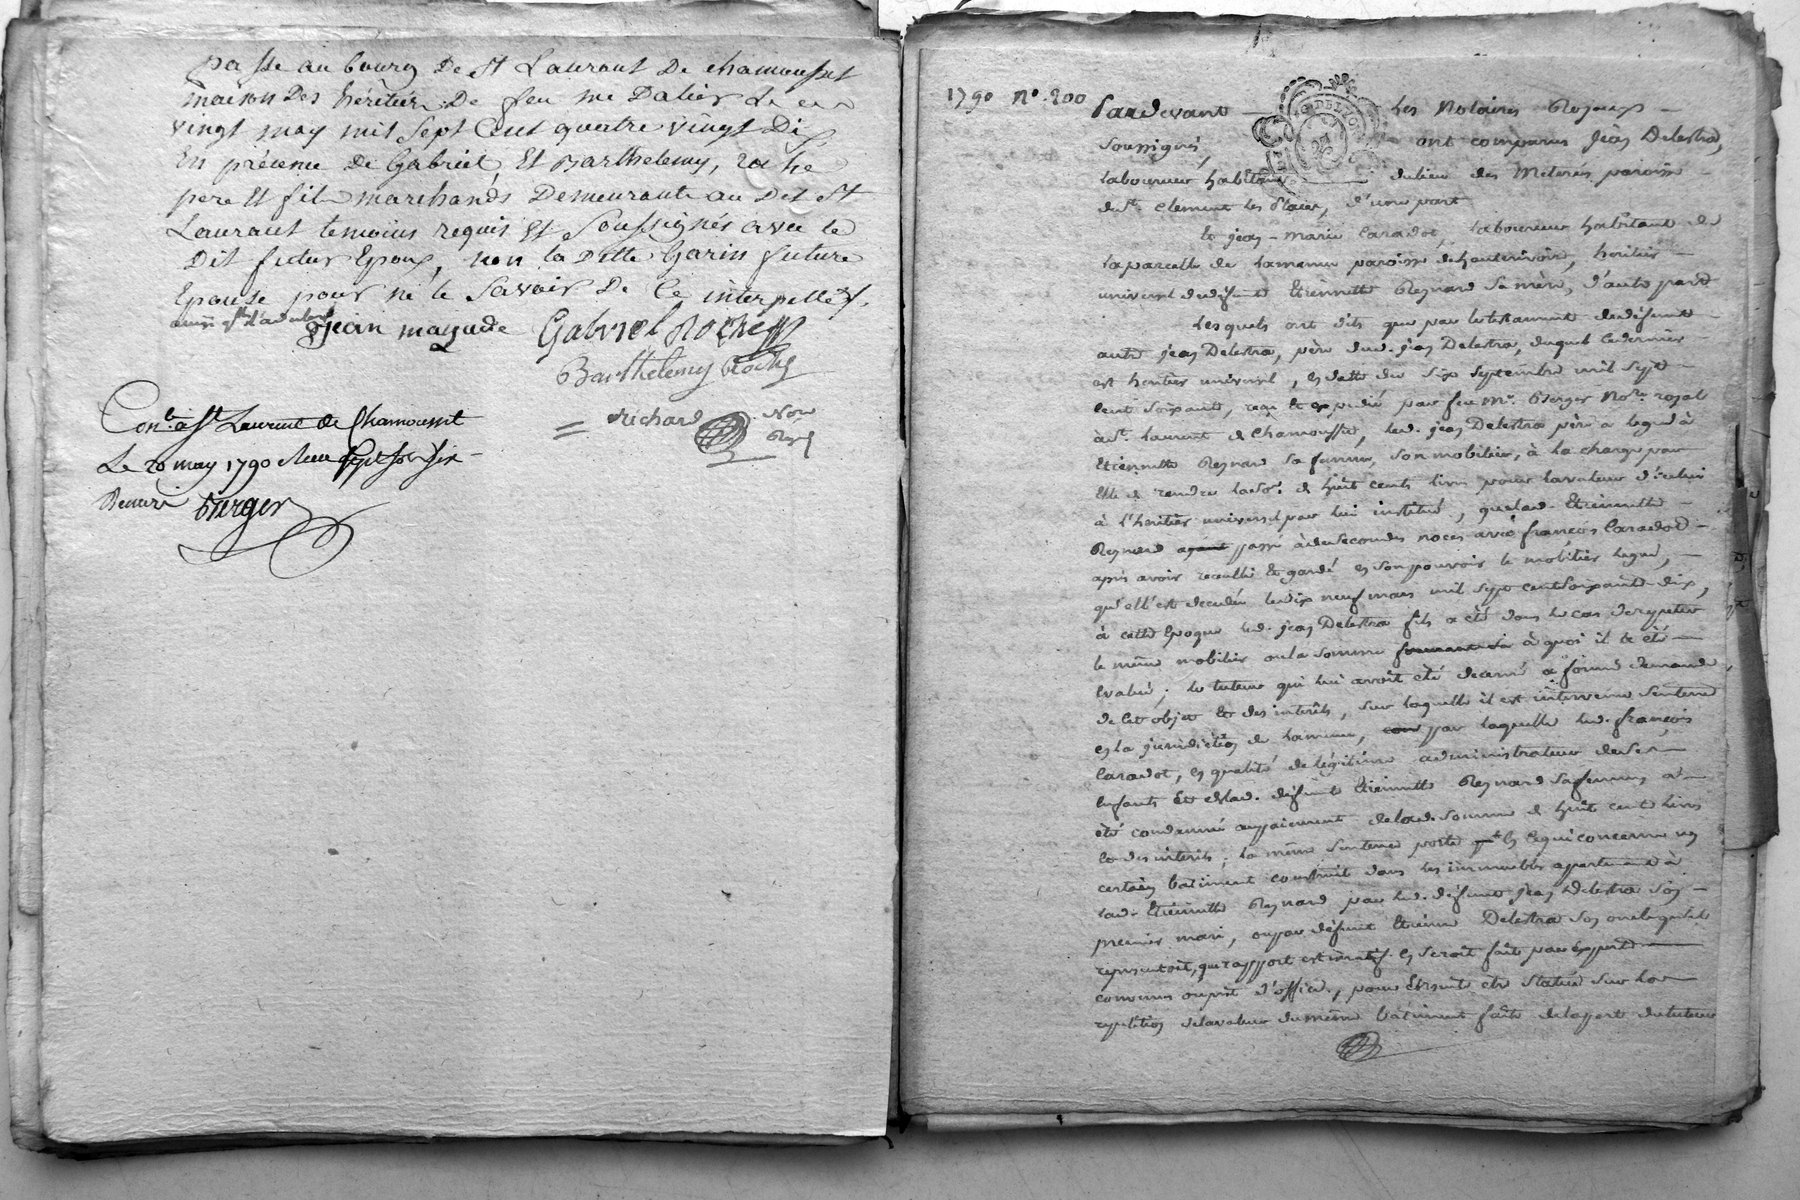 passe au bourg De St Laurant De chamousset
maison Des héritiers De feu me Dalier Le
vingt may mil sept Cent quatre vingt Dix
En présence De Gabriel, Et Barthelemy, roche
pere Et fils marchands Demeurants au Dit St
Laurant temoins requis Et soussignés avec le
Dit futur Epoux, non la Ditte Garin future
Epouse pour ne le savoir De Ce interpellés
Jean mayade Gabriel Roche
Barthelemy Roche
Richard Nore Royl
Con.le a St Laurent de Chamousset
Le 20 may 1790 Reçu sept sols six
Deniers Berger
1790 No. 200
Pardevant Les Notaires Royaux
Soussignés, ont comparus Jean Delestra,
laboureur habitant du lieu des Meteries paroisse
de St. Clement les Places, d'une part
Et jean-marie Caradot, laboureur habitant de
la parcelle de lamenue paroisse de hauterivoire, heritier
universel de defunte Etiennette Reynard sa mère, d'autre part
Lesquels ont dits que par le testament de defunt
autre jean Delestra, père dud. jean Delestra, duquel ce dernier
est heritier universel, en datte du six septembre mil sept
cent soixante, reçu et expedié par feu Me. Berger Nore. royal
à St. laurent de Chamousset, led. jean Delestra père a legué à
Etiennette Reynard sa femme, son mobilier, à la charge par
Elle de rendre la so.e de huit cents livres pour la valeur d'icelui
à l'heritier universel par lui institué, que lad. Etiennette
Reynard ayant passé à de secondes noces avec françois Caradot
après avoir recueilli et gardé en son pouvoir le mobilier legué,
qu'elle est decedée le dix neuf mars mil sept cent soixante dix,
à cette Epoque led. jean Delestra fils a été dans le cas de repeter
le même mobilier ou la somme à quoi il a été
Evalué; le tuteur qui lui avoit été decerné a formé demande
de cet objet et des interêts, sur laquelle il est intervenu sentence
en la jurisdiction de lamenue, par laquelle led. françois
Caradot, en qualité de légitime administrateur de ses
Enfants Et de lad. defunte Etiennette Reynard sa femme a
été condamné au paiement de lad. somme de huit cent livres
et des interêts; la même sentence porte en ce qui concerne un
certain bâtiment construit dans les immeubles apartenant à
lad. Etiennette Reynard par led. defunt jean Delestra son
premier mari, ou par defunt Etienne Delestra son oncle qu'il
representoit, que rapport estimatif en seroit fait par Experts
convenus ou pris d'office, pour Ensuite etre statué sur la
repetition de la valeur du même bâtiment faite de la part du tuteur